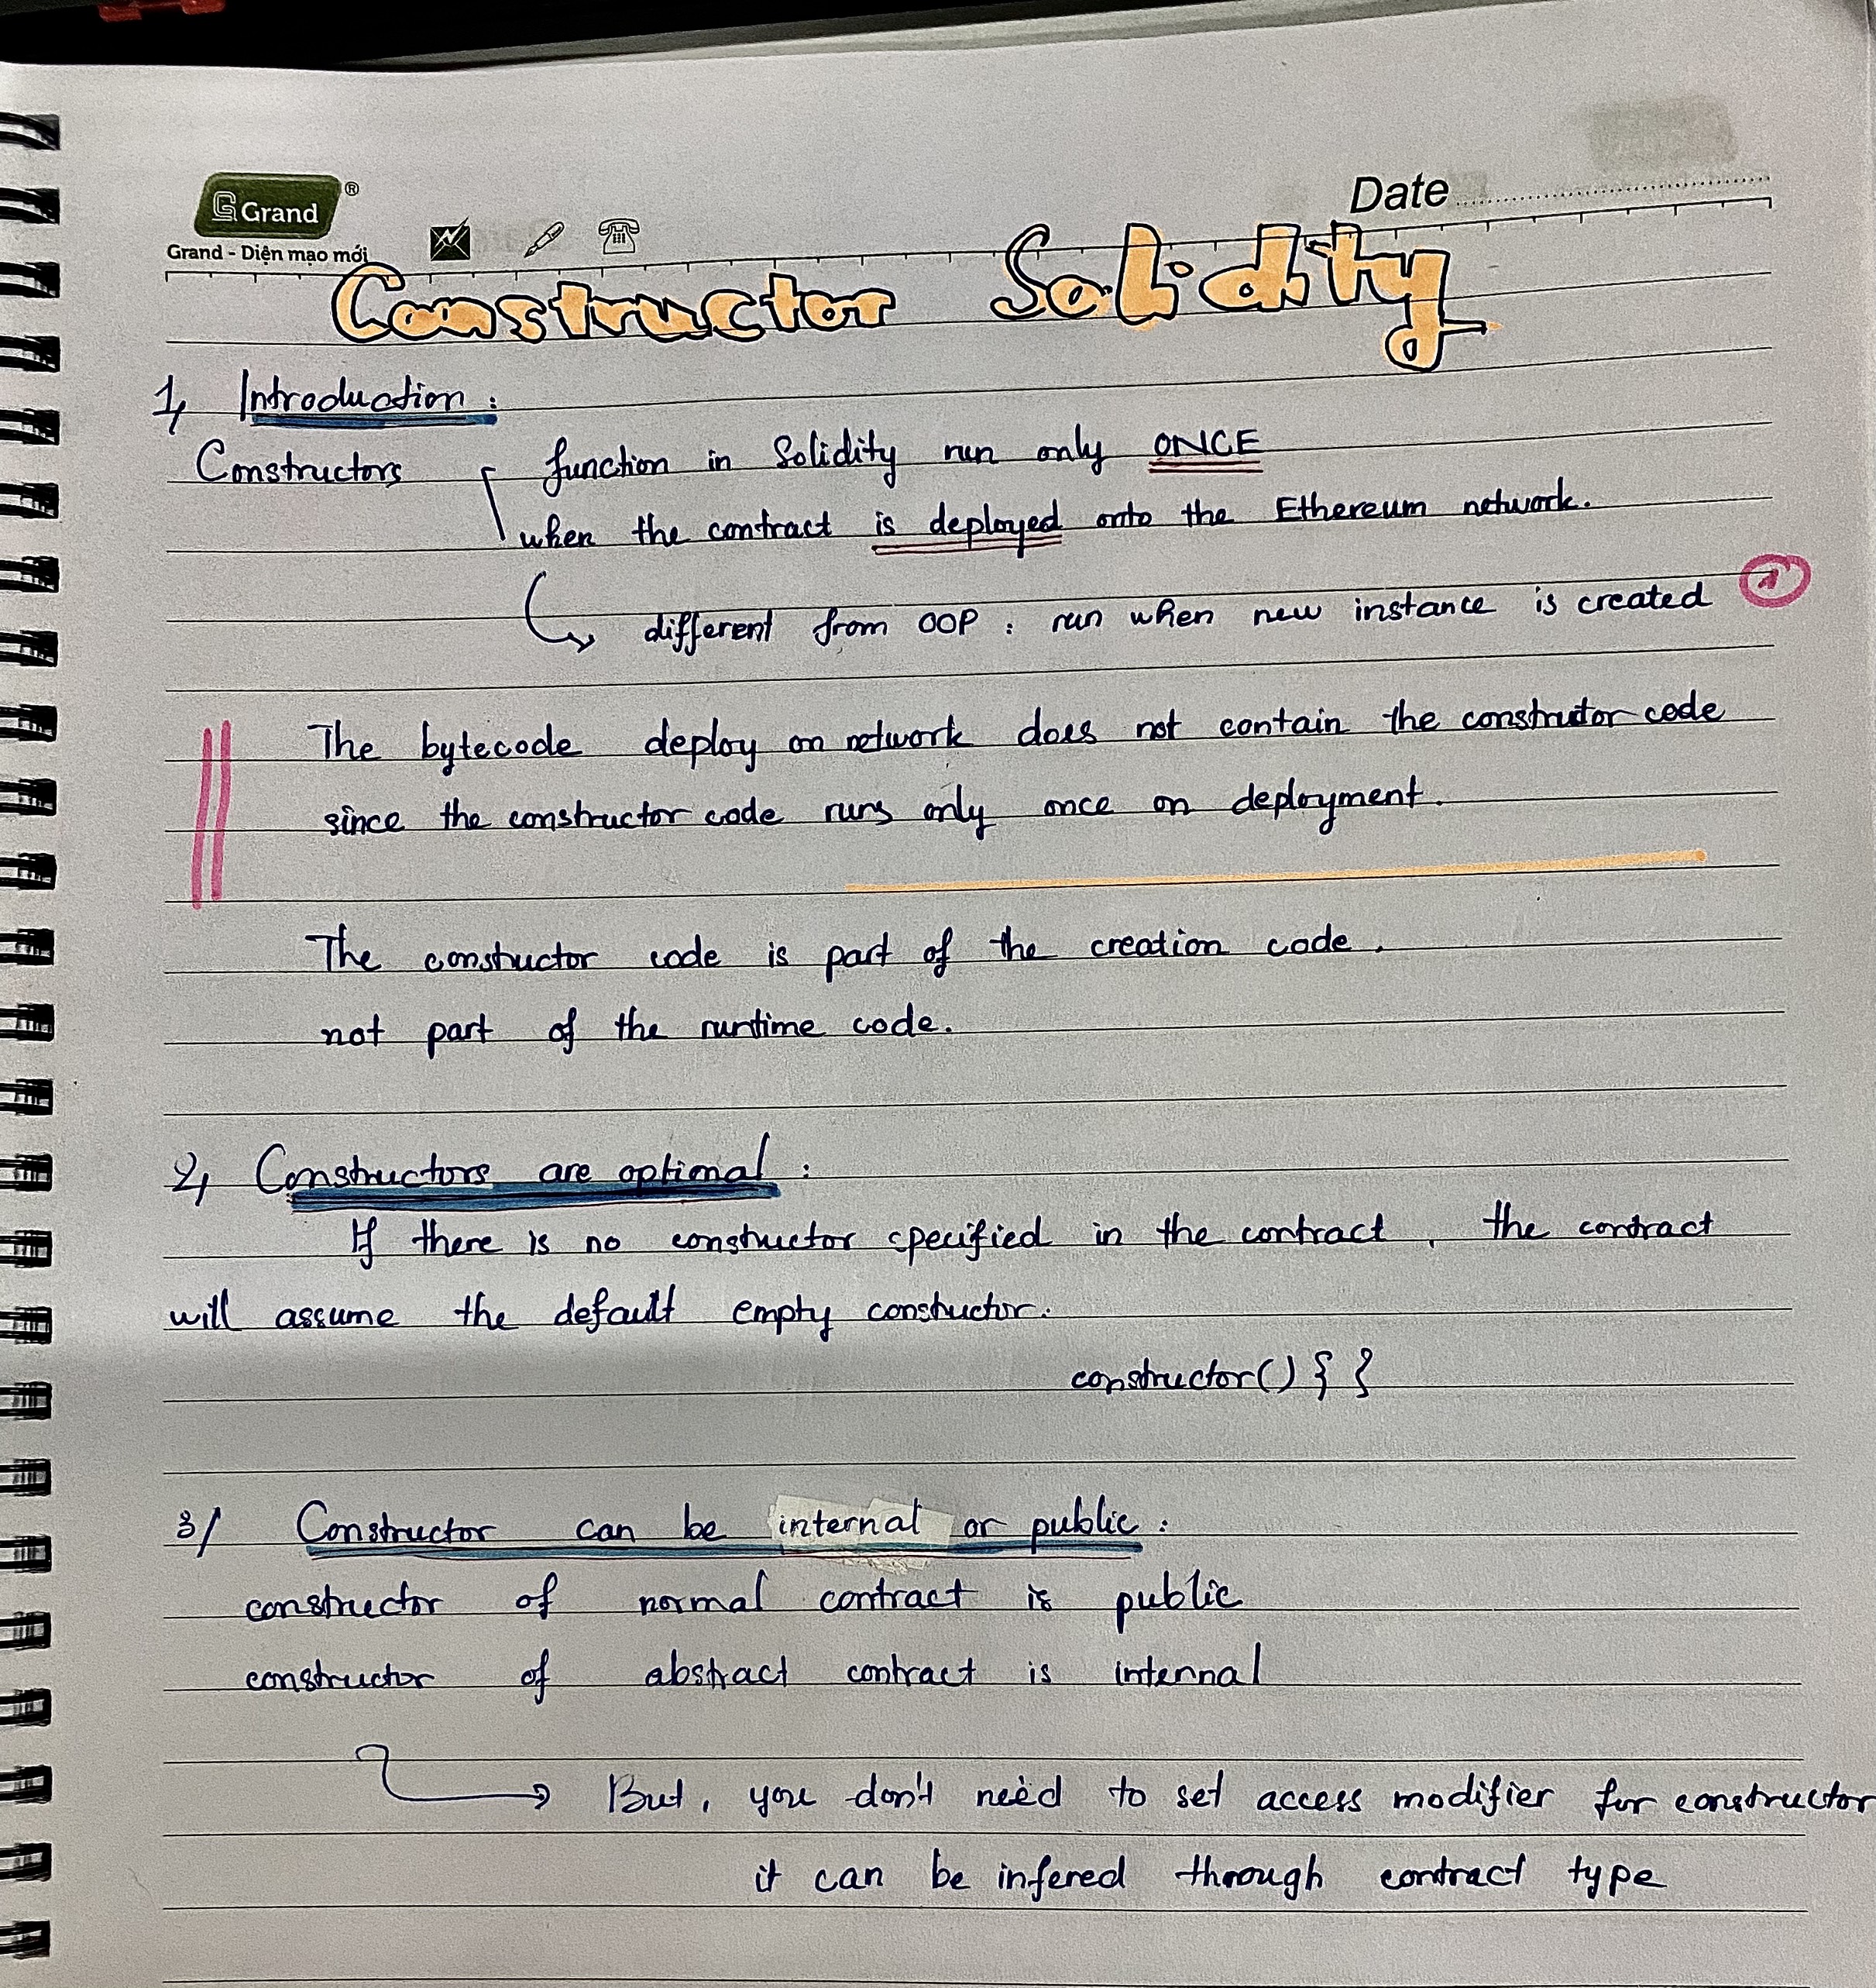 Grand ®
Grand - Diện mạo mới
Date
Constructor Solidity
1, Introduction :
Constructors function in Solidity run only ONCE
when the contract is deployed onto the Ethereum network.
different from OOP : run when new instance is created 1
The bytecode deploy on network does not contain the constructor code
since the constructor code runs only once on deployment.
The constuctor code is part of the creation code.
not part of the runtime code.
2, Constructors are optional :
If there is no constructor specified in the contract, the contract
will assume the default empty constuctor.
constructor() { }
3/ Constructor can be internal or public :
constructor of normal contract is public
constructor of abstract contract is internal
But, you don't need to set access modifier for constructor
it can be infered through contract type